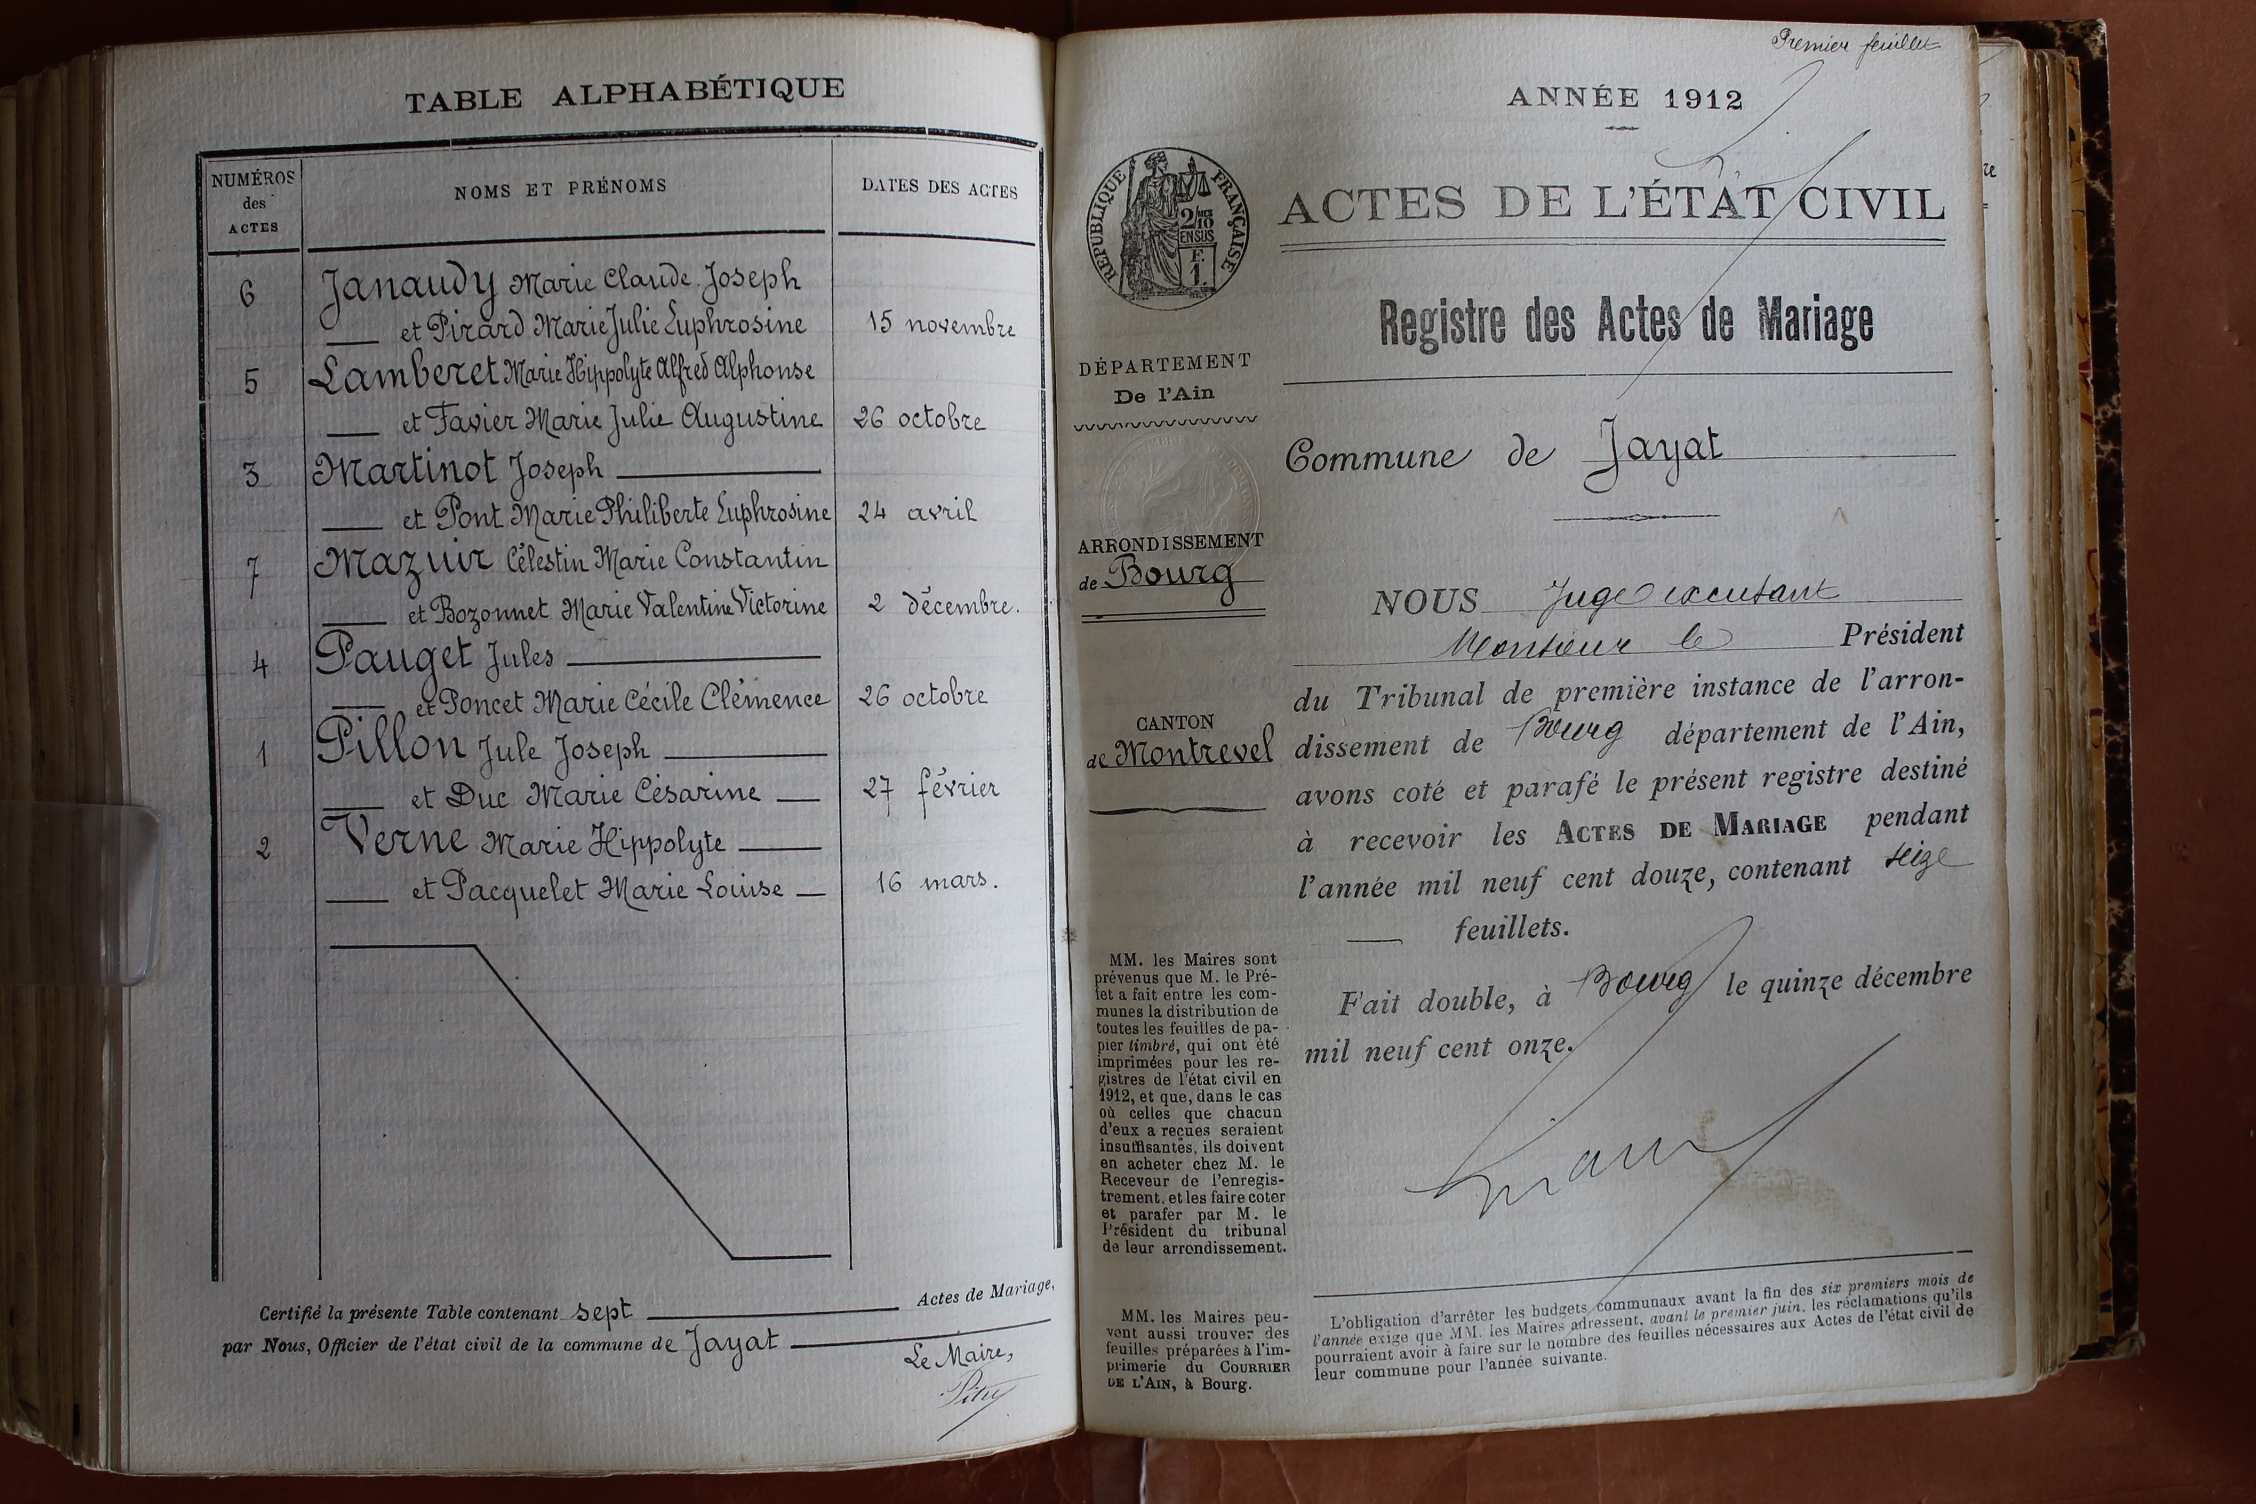 TABLE ALPHABÉTIQUE
NUMÉROS des ACTES
NOMS ET PRÉNOMS
DATES DES ACTES
6 Janaudy Marie Claude Joseph
et Pirard Marie Julie Euphrosine 15 novembre
5 Lamberet Marie Hippolyte Alfred Alphonse
et Favier Marie Julie Augustine 26 octobre
3 Martinot Joseph
et Pont Marie Philiberte Euphrosine 24 avril
7 Mazuir Célestin Marie Constantin
et Bozonnet Marie Valentine Victorine 2 décembre.
4 Pauget Jules
et Poncet Marie Cécile Clémence 26 octobre
1 Pillon Jule Joseph
et Duc Marie Césarine 27 février
2 Verne Marie Hippolyte
et Pacquelet Marie Louise 16 mars.
Certifié la présente Table contenant sept Actes de Mariage,
par Nous, Officier de l'état civil de la commune de Jayat
Le Maire,
Premier feuillet
ANNÉE 1912
RÉPUBLIQUE FRANÇAISE
2/10 EN SUS
F. 1.
ACTES DE L'ÉTAT CIVIL
Registre des Actes de Mariage
DÉPARTEMENT
De l'Ain
Commune de Jayat
ARRONDISSEMENT
de Bourg
CANTON
de Montrevel
NOUS Juge excusant
Monsieur le Président
du Tribunal de première instance de l'arron-
dissement de Bourg département de l'Ain,
avons coté et parafé le présent registre destiné
à recevoir les ACTES DE MARIAGE pendant
l'année mil neuf cent douze, contenant seize
feuillets.
Fait double, à Bourg le quinze décembre
mil neuf cent onze.
MM. les Maires sont
prévenus que M. le Pré-
fet a fait entre les com-
munes la distribution de
toutes les feuilles de pa-
pier timbré, qui ont été
imprimées pour les re-
gistres de l'état civil en
1912, et que, dans le cas
où celles que chacun
d'eux a reçues seraient
insuffisantes, ils doivent
en acheter chez M. le
Receveur de l'enregis-
trement, et les faire coter
et parafer par M. le
Président du tribunal
de leur arrondissement.
MM. les Maires peu-
vent aussi trouver des
feuilles préparées à l'im-
primerie du COURRIER
DE L'AIN, à Bourg.
L'obligation d'arrêter les budgets communaux avant la fin des six premiers mois de
l'année exige que MM. les Maires adressent, avant le premier juin, les réclamations qu'ils
pourraient avoir à faire sur le nombre des feuilles nécessaires aux Actes de l'état civil de
leur commune pour l'année suivante.